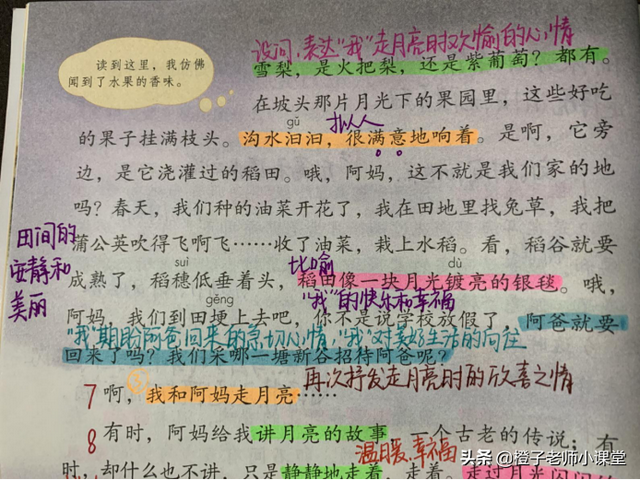 设问,表达"我"走月亮时欢愉的心情
读到这里,我仿佛
闻到了水果的香味。
雪梨,是火把梨,还是紫葡萄?都有。
在坡头那片月光下的果园里,这些好吃
gǔ
拟人
的果子挂满枝头。沟水汩汩,很满意地响着。是啊,它旁
边,是它浇灌过的稻田。哦,阿妈,这不就是我们家的地
吗?春天,我们种的油菜开花了,我在田地里找兔草,我把
田间的
安静和
美丽
蒲公英吹得飞啊飞……收了油菜,栽上水稻。看,稻谷就要
suì
比喻
dù
成熟了,稻穗低垂着头,稻田像一块月光镀亮的银毯。哦,
gěng
"我"的快乐和幸福
阿妈,我们到田埂上去吧,你不是说学校放假了,阿爸就要
"我"期盼阿爸回来的急切心情,"我"对美好生活的向往
回来了吗?我们采哪一塘新谷招待阿爸呢?
7 啊,我和阿妈走月亮……
再次抒发走月亮时的欣喜之情
8 有时,阿妈给我讲月亮的故事,一个古老的传说;有
温暖、幸福
时,却什么也不讲,只是静静地走着,走着。走过月光闪闪的
头条 @橙子老师小课堂